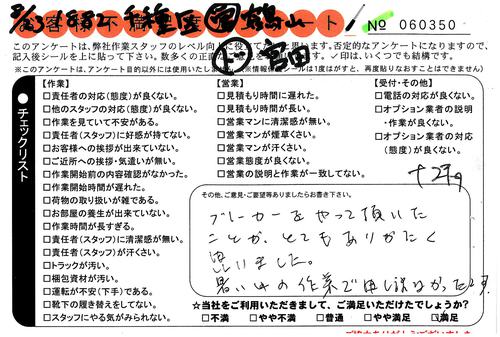 お客様不満度アンケート!
№ 060350
このアンケートは、弊社作業スタッフのレベル向上に役立てたいと思います。否定的なアンケートになりますので、
記入後シールを上に貼って下さい。数多くの正
✓印は、いくつでも結構です。
※このアンケートは、アンケート目的以外には使用いたしません。
※情報保護シールは1度はがすと、再度貼りなおすことはできません)
チェックリスト
【作業】
□責任者の対応(態度)が良くない。
□他のスタッフの対応(態度)が良くない。
□作業を見ていて不安がある。
□責任者(スタッフ)に好感が持てない。
□お客様への挨拶が出来ていない。
□ご近所への挨拶・気遣いが無い。
□作業開始前の内容確認がなかった。
□作業開始時間が遅れた。
□荷物の取り扱いが雑である。
□お部屋の養生が出来ていない。
□作業時間が長すぎる。
□責任者(スタッフ)に清潔感が無い。
□責任者(スタッフ)が汗くさい。
□トラックが汚い。
□梱包資材が汚い。
□運転が安全(下手)である。
□靴下の履き替えをしてない。
□スタッフにやる気がみられない。
【営業】
□見積もり時間に遅れた。
□見積もり時間が長い。
□営業マンに清潔感が無い。
□営業マンが煙草くさい。
□営業マンが汗くさい。
□営業態度が良くない。
□営業の説明と作業が一致してない。
【受付・その他】
□電話の対応が良くない。
□オプション業者の説明
・作業が良くない。
□オプション業者の対応
(態度)が良くない。
その他、ご意見・ご要望等ありましたらお書き下さい。
ブレーカーをやって頂いた
ことが、とてもありがたく
思いました。
暑い中の作業で申し訳なかったです。
★当社をご利用いただきまして、ご満足いただけたでしょうか?
□不満 □やや不満 □普通 □やや満足 □満足